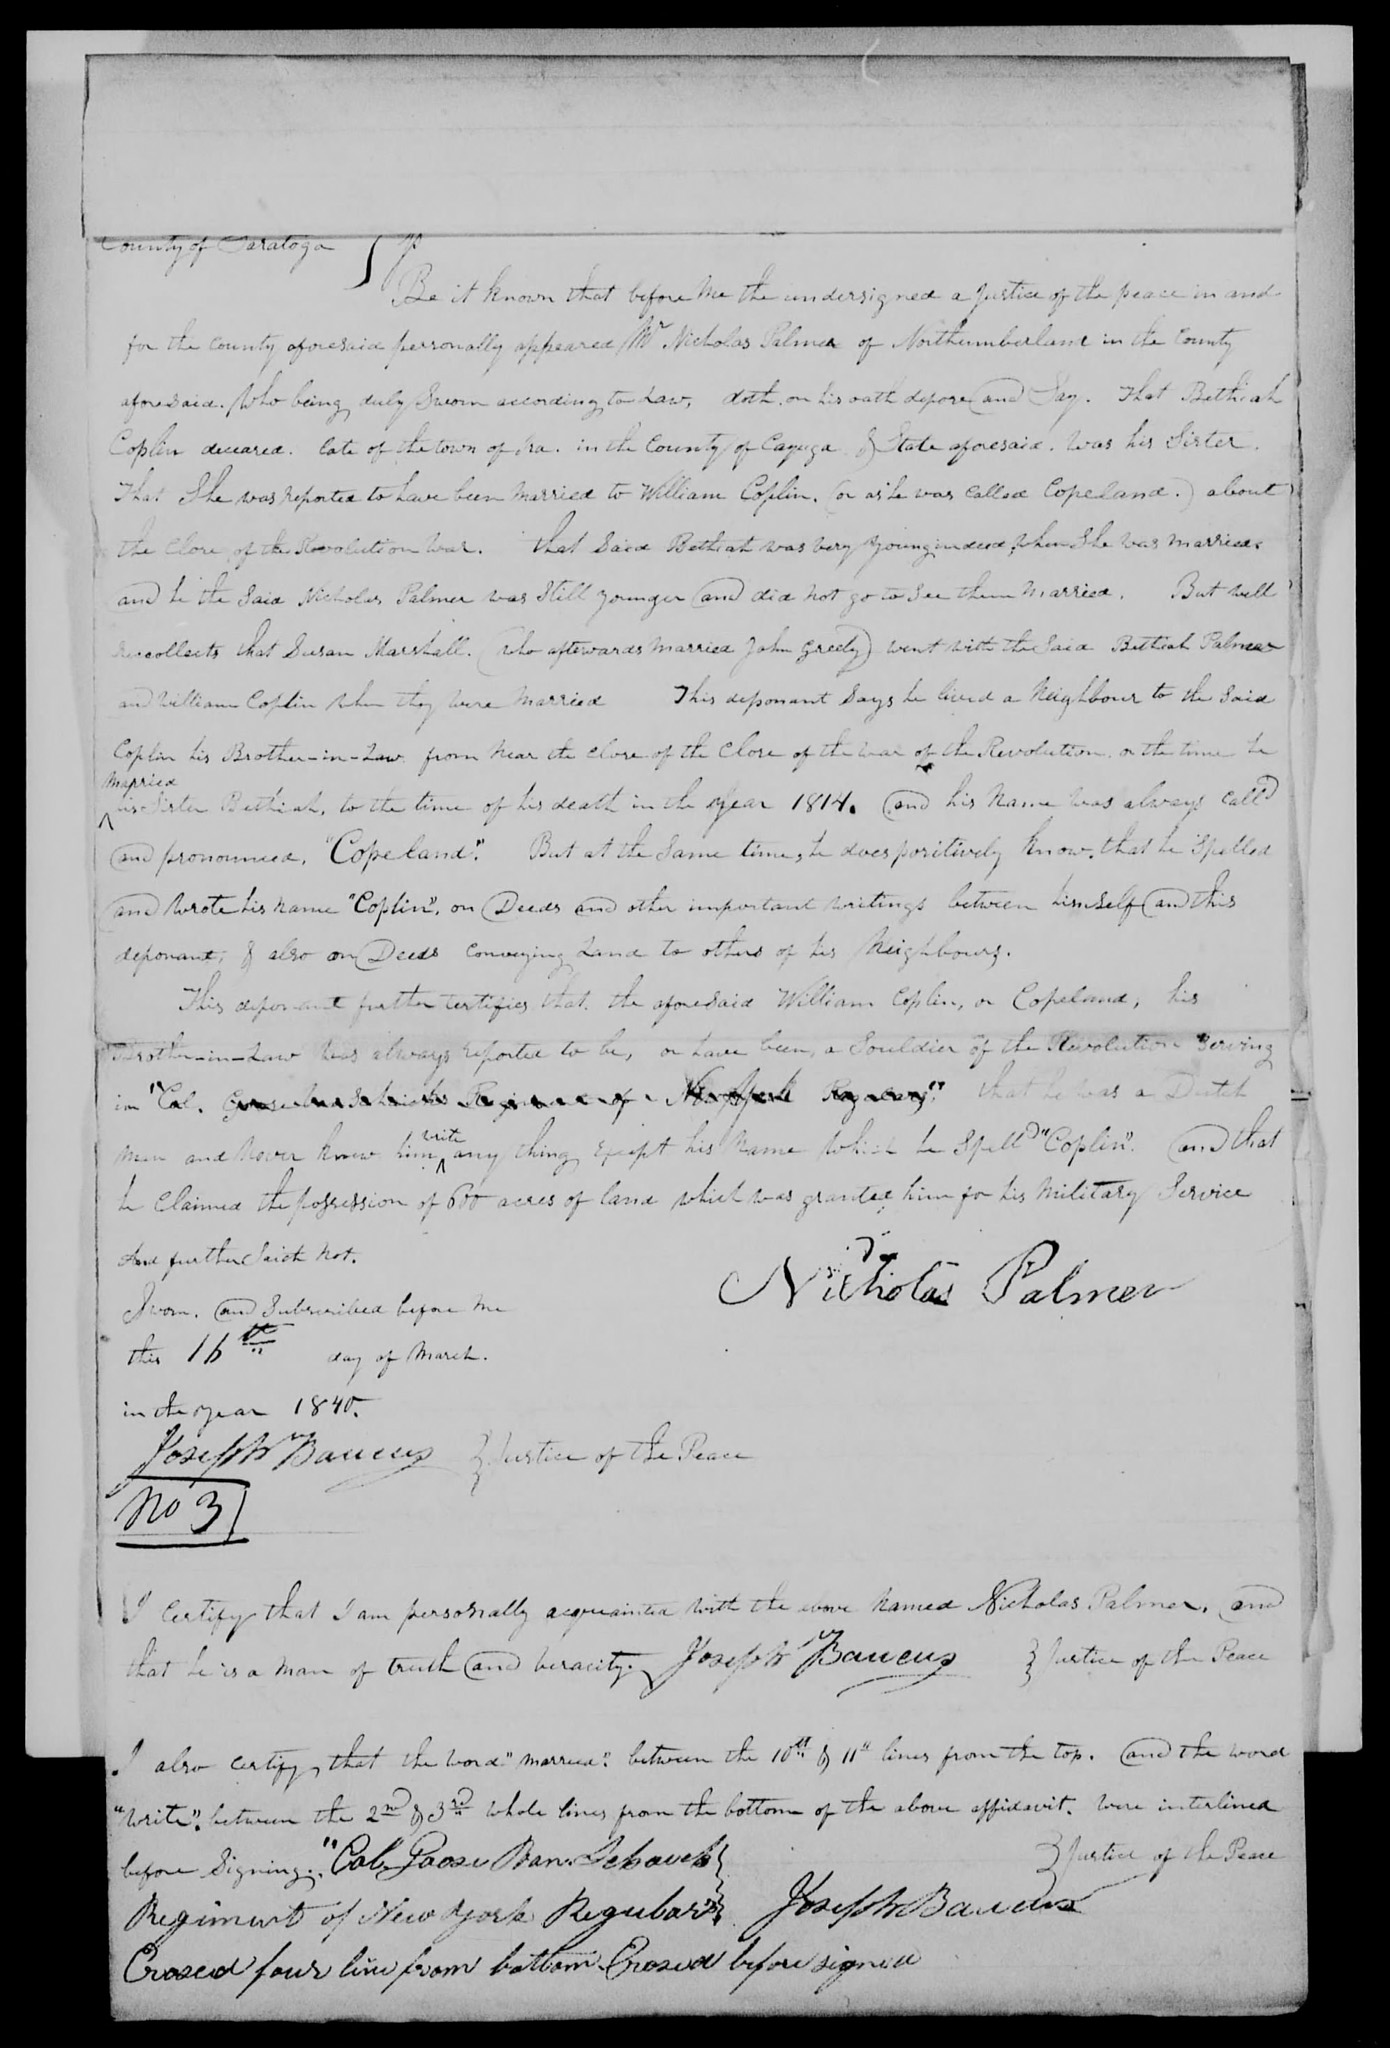 County of Saratoga } ss
Be it known that before me the undersigned a Justice of the peace in and
for the county aforesaid personally appeared Mr Nicholas Palmer of Northumberland in the County
aforesaid. Who being duly Sworn according to Law, doth on his oath depose and Say. That Bethiah
Coplin deceased. late of the town of Ira. in the County of Cayuga & State aforesaid. Was his Sister.
That She was reported to have been Married to William Coplin. (or as he was Called Copeland.) about
the Close of the Revolution War. that Said Bethiah was very young indeed, when She was Married.
and he the Said Nicholas Palmer was Still younger and did not go to See them Married. But well
reccollects that Susan Marshall. (who afterwards Married John Greely) went with the Said Bethiah Palmer
and William Coplin when they were Married This deponant Says he lived a Neighbour to the Said
Coplin his Brother-in-Law from Near the close of the Close of the War of the Revolution. or the time he
Married
his Sister Bethiah, to the time of his death in the year 1814. and his Name was always Calld
and pronounced, "Copeland". But at the Same time, he does positively know. that he Spelled
and Wrote his Name "Coplin", on Deeds and other important writings between himself and this
deponant, & also on Deeds Conveying Land to others of his Neighbours.
This deponant further Certifies that. the aforesaid William Coplin, or Copeland, his
Brother-in-Law was always reported to be, or have been, a Souldier of the Revolution Serving
in "Col. Regiment of New York Regulars" that he was a Dutch
write
man and Never knew him any thing Except his Name which he Spelld "Coplin". and that
he Claimed the possession of 600 acres of land which was granted him for his Military Service
And further Saith Not.
Nicholas Palmer
Sworn. and Subscribed before me
this 16th day of March.
in the year 1840.
Joseph Baucus } Justice of the Peace
No 3
I Certify that I am personally acquainted with the above Named Nicholas Palmer, and
that he is a Man of truth and veracity. Joseph Baucus } Justice of the Peace
I also Certify, that the Word "Married". between the 10th & 11th lines from the top. and the word
"Write". between the 2nd & 3rd whole lines from the bottom of the above affidavit. were interlined
before Signing. "Col. Goose Van Schouck } Justice of the Peace
Regiment of New York Regulars" } Joseph Baucus
Erased four line from bottom Erased before signed